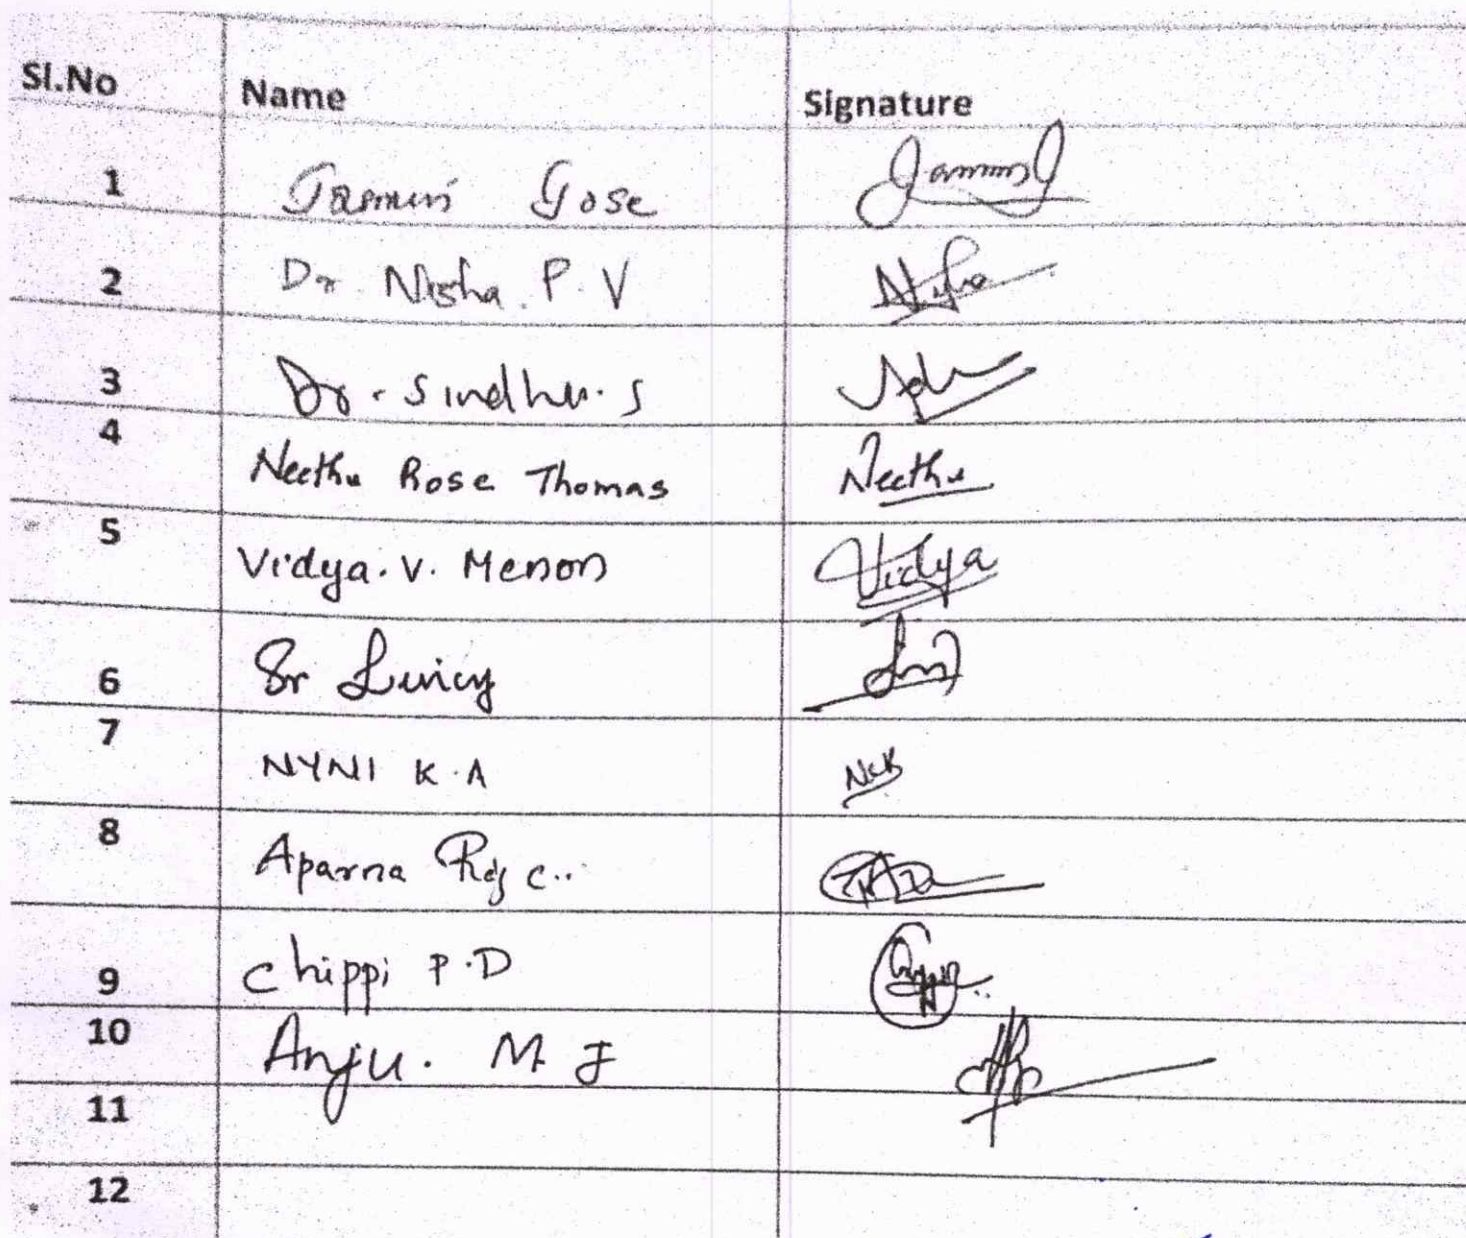 Sl.No Name Signature
1 Jasmin Jose
2 Dr. Nisha. P. V Nisha
3 Dr. Sindhu. S
4 Neethu Rose Thomas Neethu
5 Vidya. V. Menon Vidya
6 Sr
7 NYNI K. A
8 Aparna Raj C..
9 Chippi P.D
10 Anju. M J
11
12